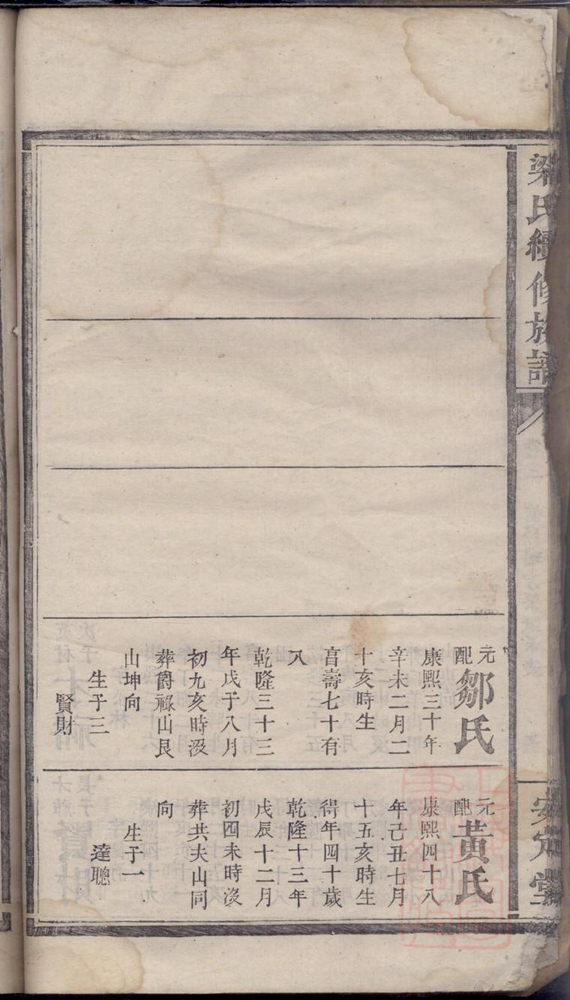 梁氏續修族譜
安定堂
元配鄒氏
康熙三十年
辛未二月二
十亥時生
享壽七十有
八
乾隆三十三
年戊子八月
初九亥時沒
葬爵祿山艮
山坤向
生子三
賢財
元配黃氏
康熙四十八
年己丑七月
十五亥時生
得年四十歲
乾隆十三年
戊辰十二月
初四未時沒
葬共夫山同
向
生子一
達聰